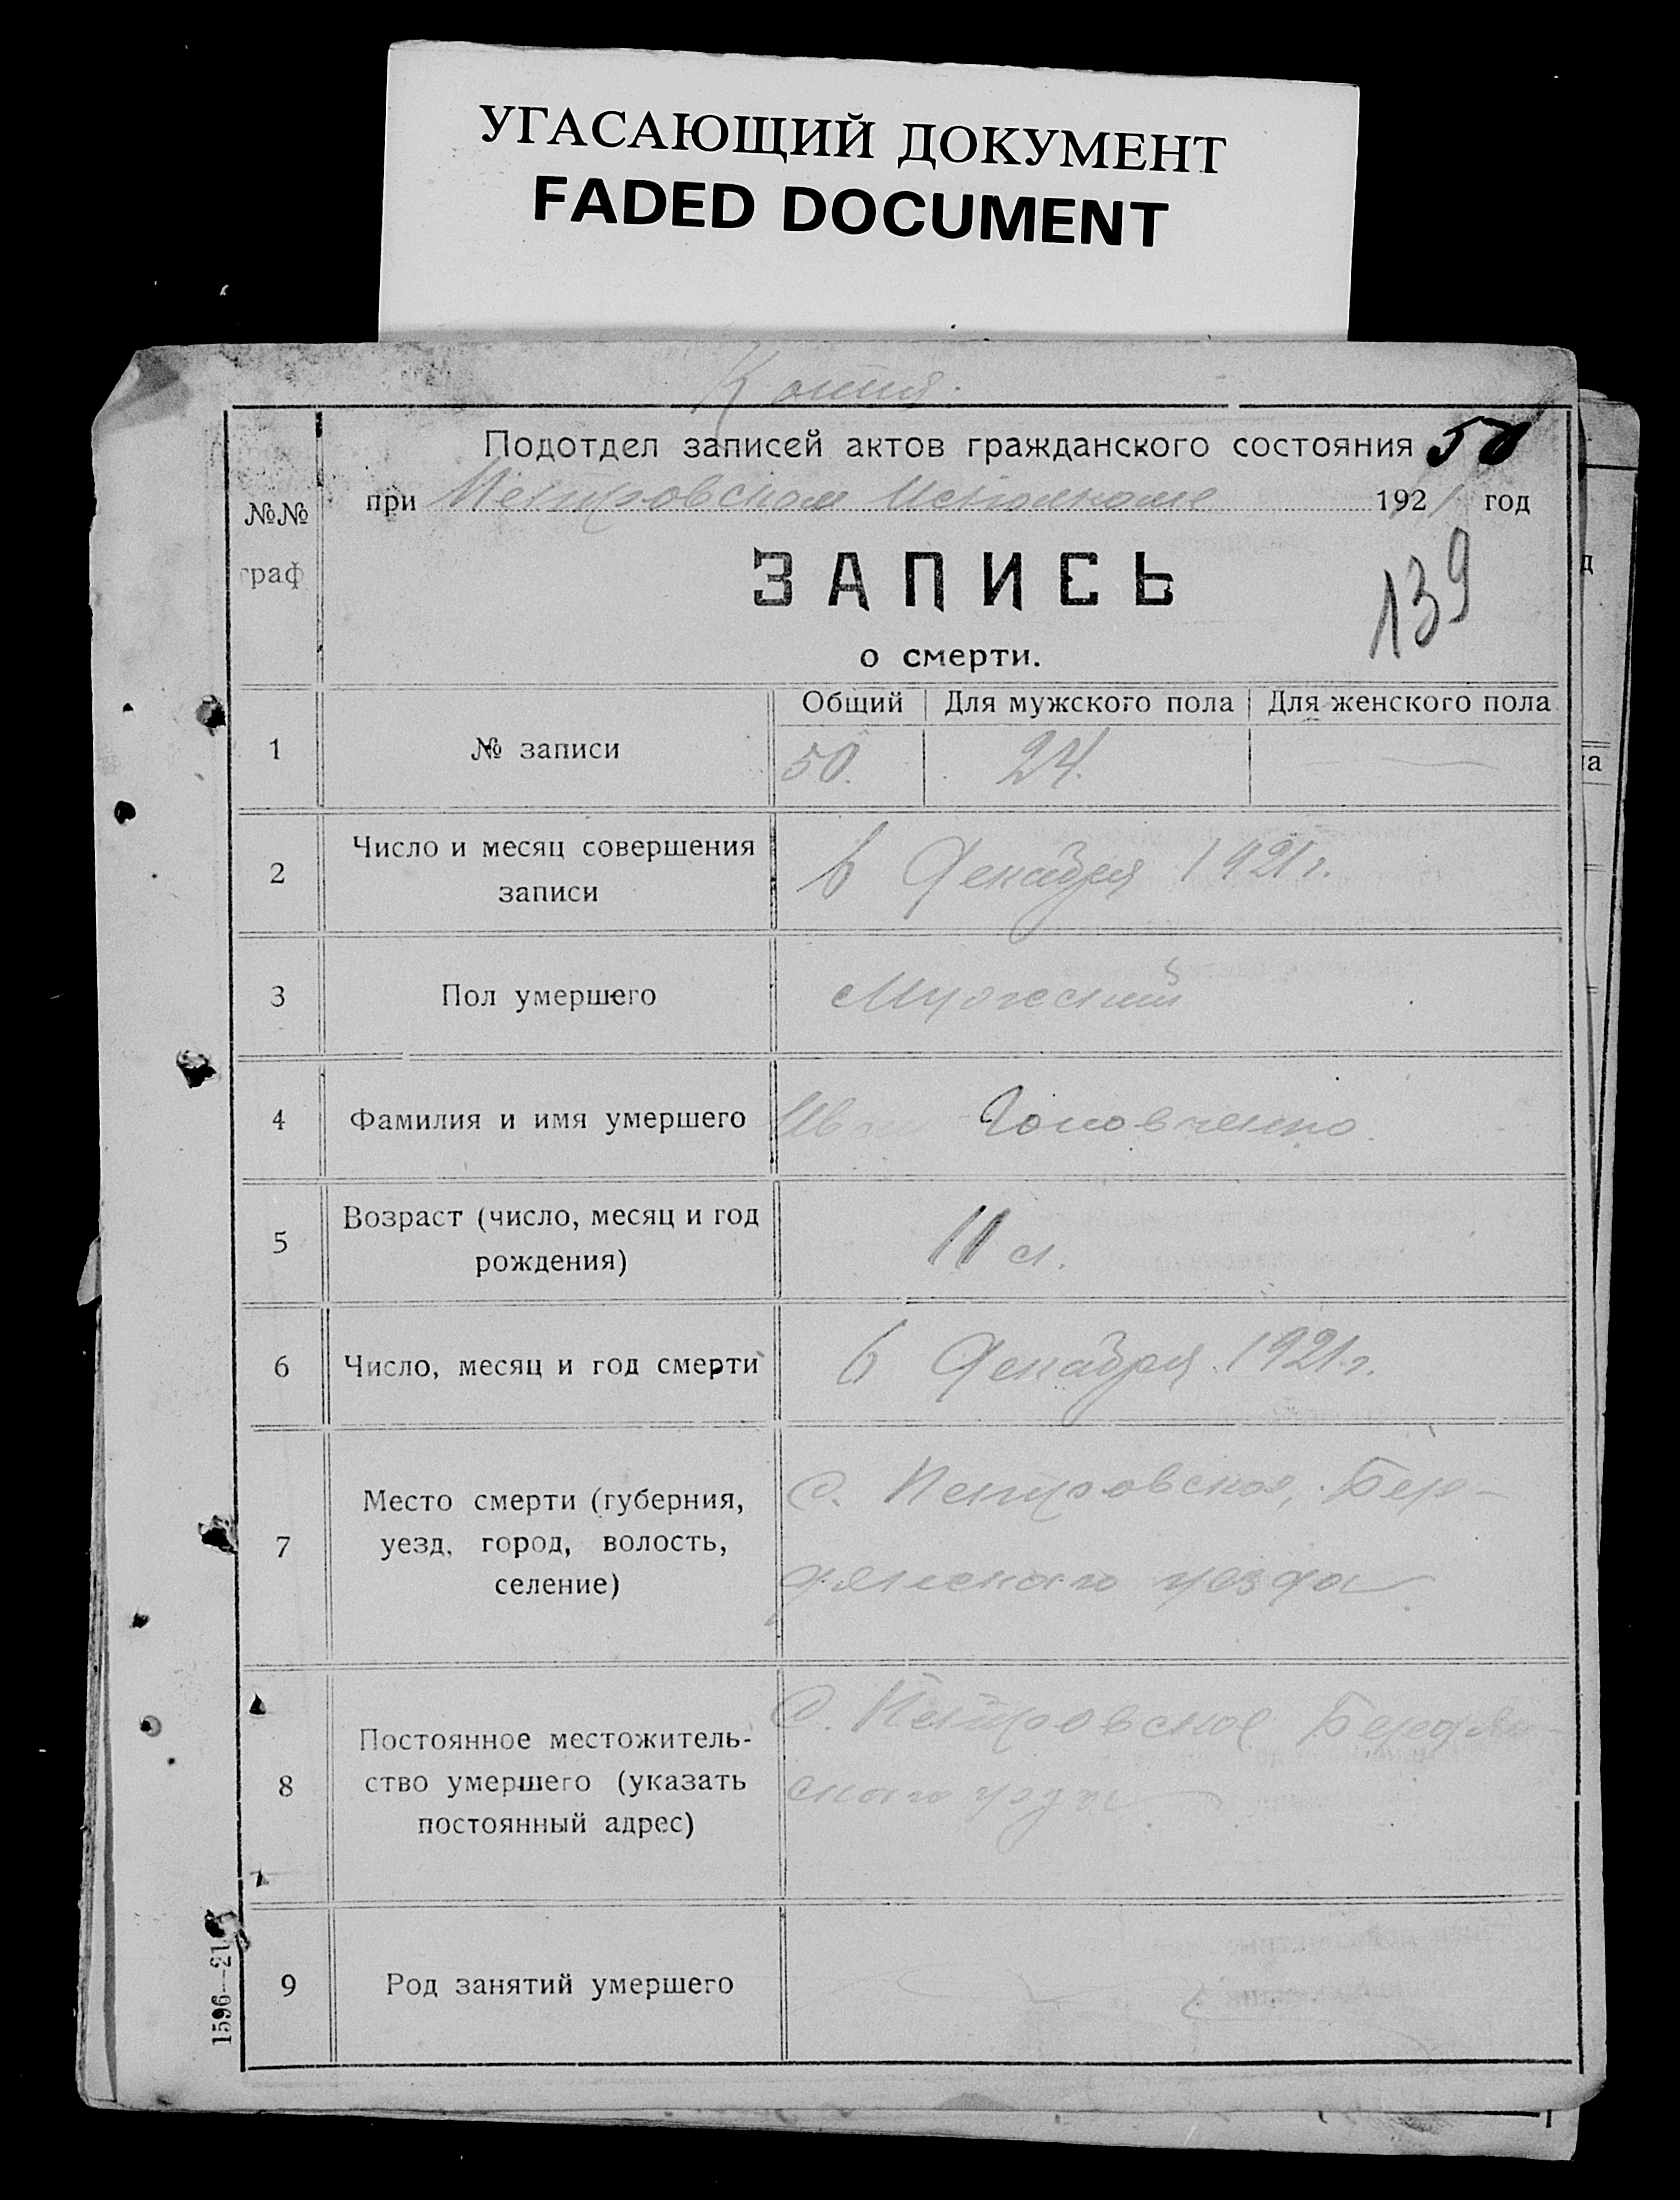 УГАСАЮЩИЙ ДОКУМЕНТ
FADED DOCUMENT
Копия.
Подотдел записей актов гражданского состояния 50
при Петровском Исполкоме 1921 год
№№
граф
ЗАПИСЬ
139
о смерти.
Общий Для мужского пола Для женского пола
1 № записи 50. 24. —
2 Число и месяц совершения
записи
6 Декабря 1921 г.
3 Пол умершего Мужеский
4 Фамилия и имя умершего Головченко
5 Возраст (число, месяц и год
рождения)
11 л.
6 Число, месяц и год смерти 6 Декабря 1921 г.
7 Место смерти (губерния,
уезд, город, волость,
селение)
С. Петровское, Бер-
дянского уезда
8 Постоянное местожитель-
ство умершего (указать
постоянный адрес)
С. Петровское Бердян-
ского уезда
9 Род занятий умершего
1596—21